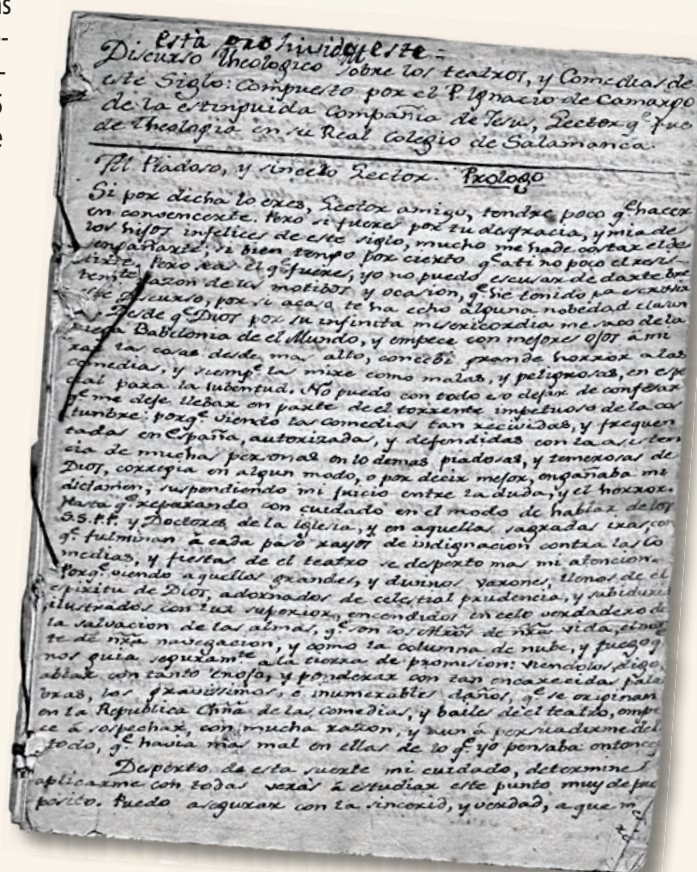 as
-
-
5
e
está prohivido este =
Discurso Theologico sobre los teatros, y Comedias de
este Siglo: Compuesto por el P. Ignacio de Camargo
de la estinguida Compañia de Jesus, Lector q.e fue
de Theologia en su Real Colegio de Salamanca.
Al Piadoso, y sincero Lector. Prologo
Si por dicha lo eres, Lector amigo, tendre poco q.e hacer
en convencerte. Pero si fueres por tu desgracia, y mia de
los hijos infelices de este siglo, mucho me hade costar el de
sengañarte; si bien tengo por cierto q.e a ti no poco el resis-
tirte. Pero seas el q.e fueres, yo no puedo escusar de darte bre
tem.te razon de los motibos y ocasion, q.e he tenido pa escribir
este discurso, por si acaso te ha echo alguna nobedad el asun
Desde q.e Dios por su infinita misericordia me saco de la
ciega Babilonia de el Mundo, y empece con mejores ojos à mi
rar las cosas desde mas alto, concebi grande horror a las
comedias, y siemp.e las mire como malas, y peligrosas, en espe
cial para la Jubentud. No puedo con todo eso dejar de confesar
q.e me deje llebar en parte de el torrente impetuoso de la cos
tumbre: porq.e viendo las comedias tan recividas, y frequen
tadas en España, autorizadas, y defendidas con la asisten
cia de muchas personas en lo demas piadosas, y temerosas de
Dios, corregia en algun modo, o por decir mejor, engañaba mi
dictamen, suspendiendo mi juicio entre la duda, y el horror.
Hasta q.e reparando con cuidado en el modo de hablar de los
S.S. P.P. y Doctores de la Iglesia, y en aquellas sagradas iras, con
q.e fulminan à cada paso rayos de indignacion contra las Co
medias, y fiestas de el teatro se desperto mas mi atencion.
Porq.e viendo aquellos grandes, y divinos varones, llenos de el
espiritu de Dios, adornados de celestial prudencia, y sabiduria
ilustrados con luz superior, encendidos en celo verdadero de
la salvacion de las almas, q.e son los de nra vida, el nor
te de nra navegacion, y como la columna de nube, y fuego q.e
nos guia seguram.te a la tierra de promision: viendolos digo,
ablar con tanto enojo, y ponderar con tan encarecidas pala
bras, los gravissimos, e inumerables daños, q.e se originan
en la Republica Chña de las comedias, y bailes de el teatro, empe
ce à sospechar, con mucha razon, y aun à persuadirme del
todo, q.e havia mas mal en ellas de lo q.e yo pensaba entonces
Desperto de esta suerte mi cuidado, determine
aplicarme con todas veras à estudiar este punto muy de pro
posito. Puedo asegurar con la sincerid, y verdad, a que m